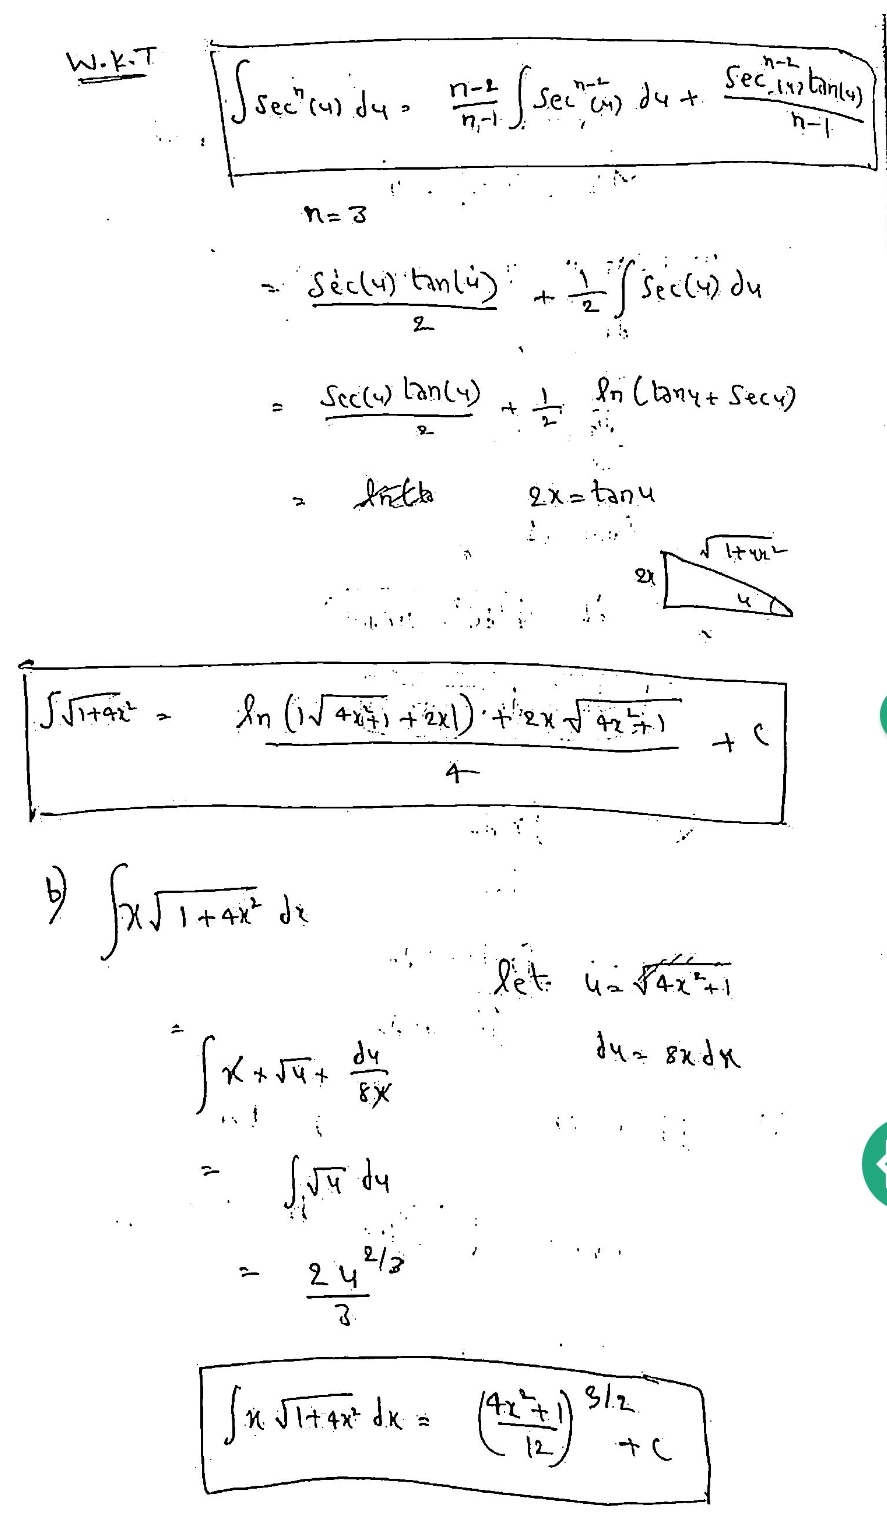 W.K.T
∫ secⁿ(u) du = n-2/n-1 ∫ secⁿ⁻²(u) du + secⁿ⁻²(u) tan(u)/n-1
n=3
= sec(u) tan(u)/2 + 1/2 ∫ sec(u) du
= sec(u) tan(u)/2 + 1/2 ln (tanu + secu)
= 2x = tanu
√1+4x²
2x
u
∫√1+4x² = ln (|√4x²+1 + 2x|) + 2x √4x²+1 / 4 + c
b) ∫x√1+4x² dx
let u = 4x²+1
= ∫ x * √u * du/8x
du = 8x dx
= ∫√u du
= 2u^2/3 / 3
∫x √1+4x² dx = (4x²+1/12)^3/2 + c